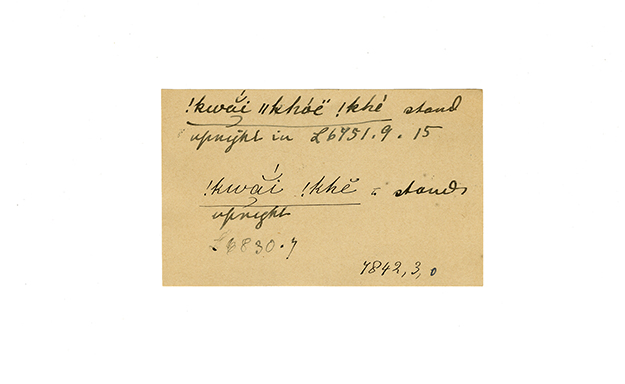 !kwắi ǁkhóë !khé stand
upright in L6751.9.15
!kwắi !khĕ = stands
upright
L6830.7
7842,3,0